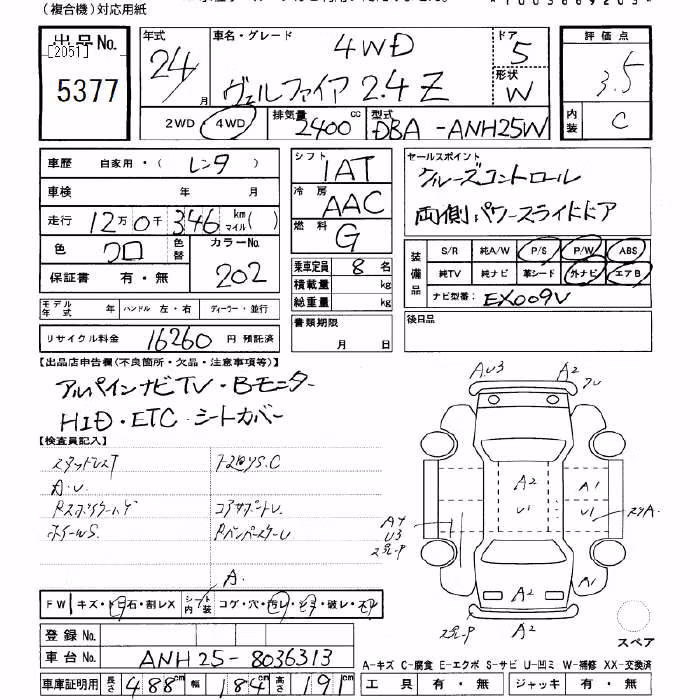 (複合機)対応用紙
出品No.
[2051]
5377
年式 24 月
車名・グレード 4WD
ヴェルファイア 2.4 Z
ドア 5
形状 W
評価点 3.5
内装 C
2WD ・ 4WD
排気量 2400 cc
型式 DBA-ANH25W
車歴 自家用・( レンタ )
車検 年 月
走行 12万0千346 km マイル( )
色 クロ 色替 カラーNo. 202
保証書 有・無
シフト IAT
冷房 AAC
燃料 G
乗車定員 8 名
積載量 kg
総重量 kg
セールスポイント
クルーズコントロール
両側パワースライドドア
装備品 S/R 純A/W P/S P/W ABS
純TV 純ナビ 革シート 外ナビ エアB
ナビ型番: EX009V
モデル年式 年 ハンドル 左・右 ディーラー・並行
リサイクル料金 16260 円 預託済
書類期限 月 日
後日品
【出品店申告欄(不良箇所・欠品・注意事項等)】
アルパインナビTV・Bモニター
HID・ETC・シートカバー
【検査員記入】
A.U.
A.
FW キズ・トビ石・割レX シート内装 コゲ・穴・汚レ・シミ・破レ・スレ
登録No.
車台No. ANH25-8036313
車庫証明用 長さ 488 cm 幅 184 cm 高さ 191 cm
AU3
A2
A1
U1
A2
U1
A4
U3
A1
A2
A2
スペア
A-キズ C-腐食 E-エクボ S-サビ U-凹ミ W-補修 XX-交換済
工具 有・無 ジャッキ 有・無